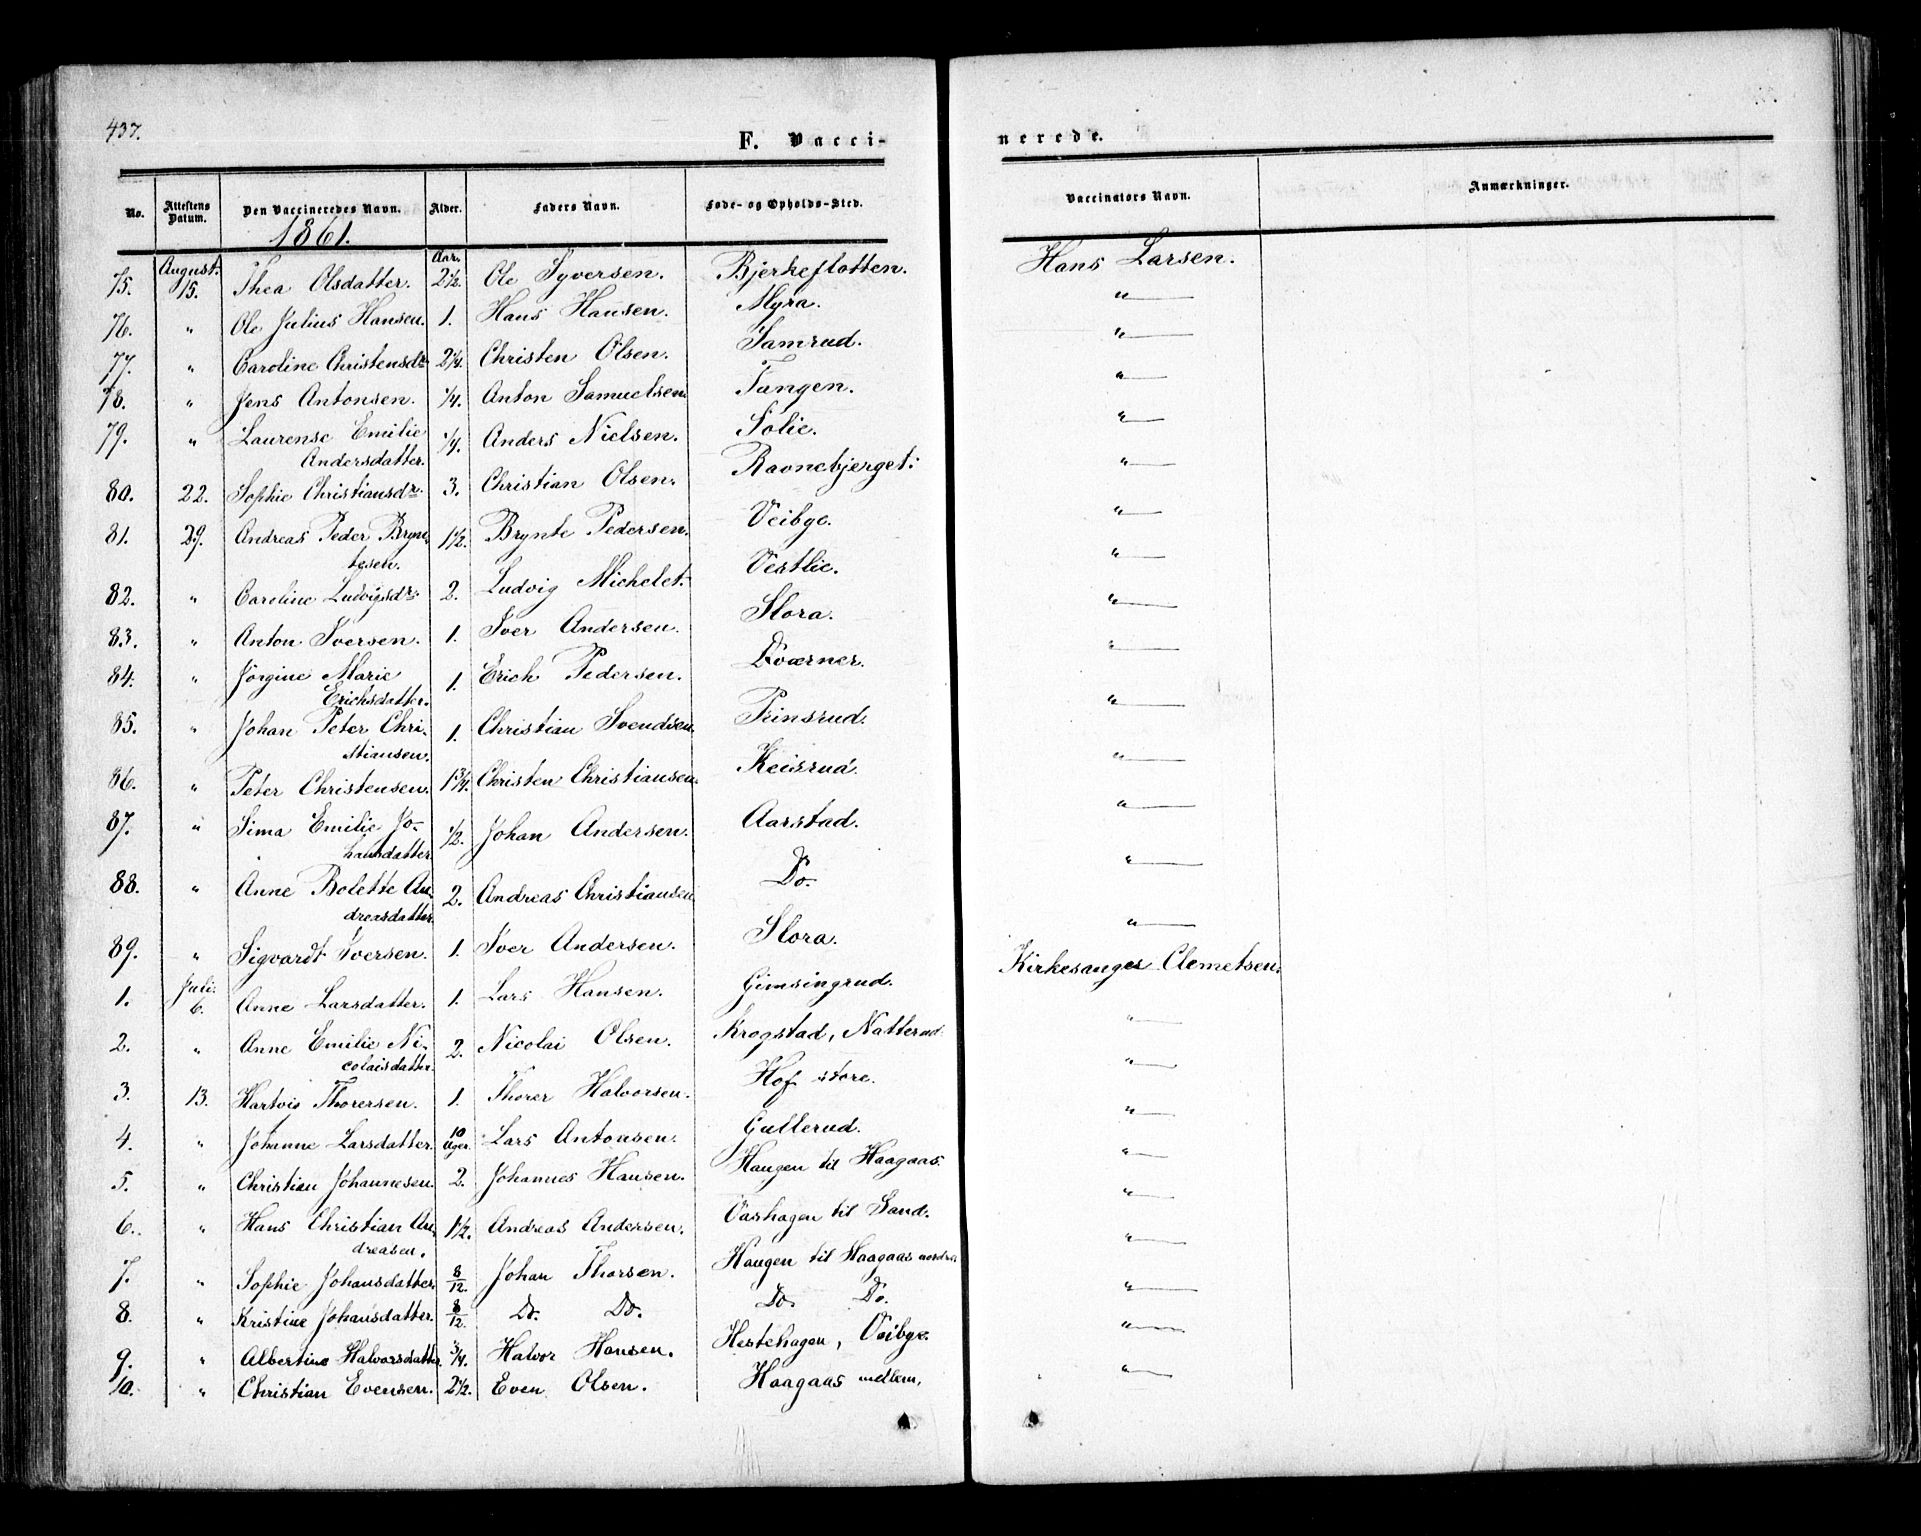 437.
F. Vacci-
nerede.
No. Attestens Datum. Den Vaccineredes Navn. Alder. Faders Navn. Føde- og Opholds-Sted. Vaccinators Navn. Anmærkninger.
1861.
August. Aar.
75. 15. Thea Olsdatter. 2 1/2. Ole Syversen. Bjerkeflotten. Hans Larsen.
76. " Ole Julius Hansen. 1. Hans Hansen. Myra. "
77. " Caroline Christensdr. 2 1/4. Christen Olsen. Samrud. "
78. " Jens Antonsen. 1/4. Anton Samuelsen. Tangen. "
79. " Laurense Emilie 1/4. Anders Nielsen. Solie. "
Andersdatter.
80. 22. Sophie Christiansdr. 3. Christian Olsen. Ravnebjerget. "
81. 29. Andreas Peder Bryn- 1 1/2. Brynte Pedersen. Veibye. "
tesen.
82. " Caroline Ludvigsdr. 2. Ludvig Michelet. Vestlie. "
83. " Anton Iversen. 1. Iver Andersen. Slora. "
84. " Jørgine Marie 1. Erich Pedersen. Dværner. "
Erichsdatter.
85. " Johan Peter Chri- 1. Christian Svendsen. Prinsrud. "
stiansen.
86. " Peter Christensen. 1 3/4. Christen Christiansen. Keisrud. "
87. " Sima Emilie Jo- 1/2. Johan Andersen. Aarstad. "
hansdatter.
88. " Anne Bolette An- 2. Andreas Christiansen. Do. "
dreasdatter.
89. " Sigvardt Iversen. 1. Iver Andersen. Slora. "
Juli.
1. 6. Anne Larsdatter. 1. Lars Hansen. Gimsingrud. Kirkesanger Clemetsen.
2. " Anne Emilie Ni- 2. Nicolai Olsen. Krogstad, Natterud. "
colaisdatter.
3. 13. Hartvig Thorersen. 1. Thorer Halvorsen. Hof store. "
4. " Johanne Larsdatter. 10 Uger. Lars Antonsen. Gullerud. "
5. " Christian Johannesen. 2. Johannes Hansen. Haugen til Haagaas. "
6. " Hans Christian An- 1 1/2. Andreas Andersen. Vashagen til Sand. "
dreasen.
7. " Sophie Johansdatter. 8/12. Johan Thorsen. Haugen til Haagaas nordre "
8. " Kristine Johansdatter. 8/12. Do. Do. Do. Do. "
9. " Albertine Halvorsdatter. 3/4. Halvor Hansen. Hestehagen, Veibye. "
10. " Christian Evensen. 2 1/2. Even Olsen. Haagaas mellem. "